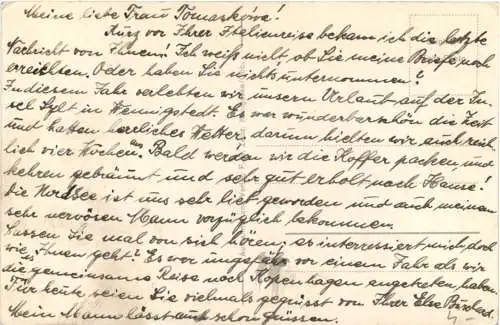 Meine liebe Frau Tomaskóva!
Kurz vor Ihrer Italienreise bekam ich die letzte
Nachricht von Ihnen! Ich weiß nicht, ob Sie meine Briefe noch
erreichten, Oder haben Sie nichts unternommen?
In diesem Jahr verlebten wir unseren Urlaub auf der In,
sel Sylt in Wennigstedt. Es war wunderbarschön die Zeit
und hatten herrliches Wetter darum hielten wir auch reich,
lich vier Wochen aus. Bald werden wir die Koffer packen, und
kehren gebräunt, und sehr gut erholt nach Hause!
Die Nordsee ist uns sehr lieb geworden und auch meinem
sehr nervösen Mann vorzüglich bekommen.
Lassen Sie mal von sich hören, es interressiert mich, doch
wie es Ihnen geht? Es war ungefähr vor einem Jahr als wir
die gemeinsame Reise nach Kopenhagen angetreten haben.
Für heute seien Sie vielmals gegrüsst von Ihrer Else
Mein Mann lässt auch schön grüssen.